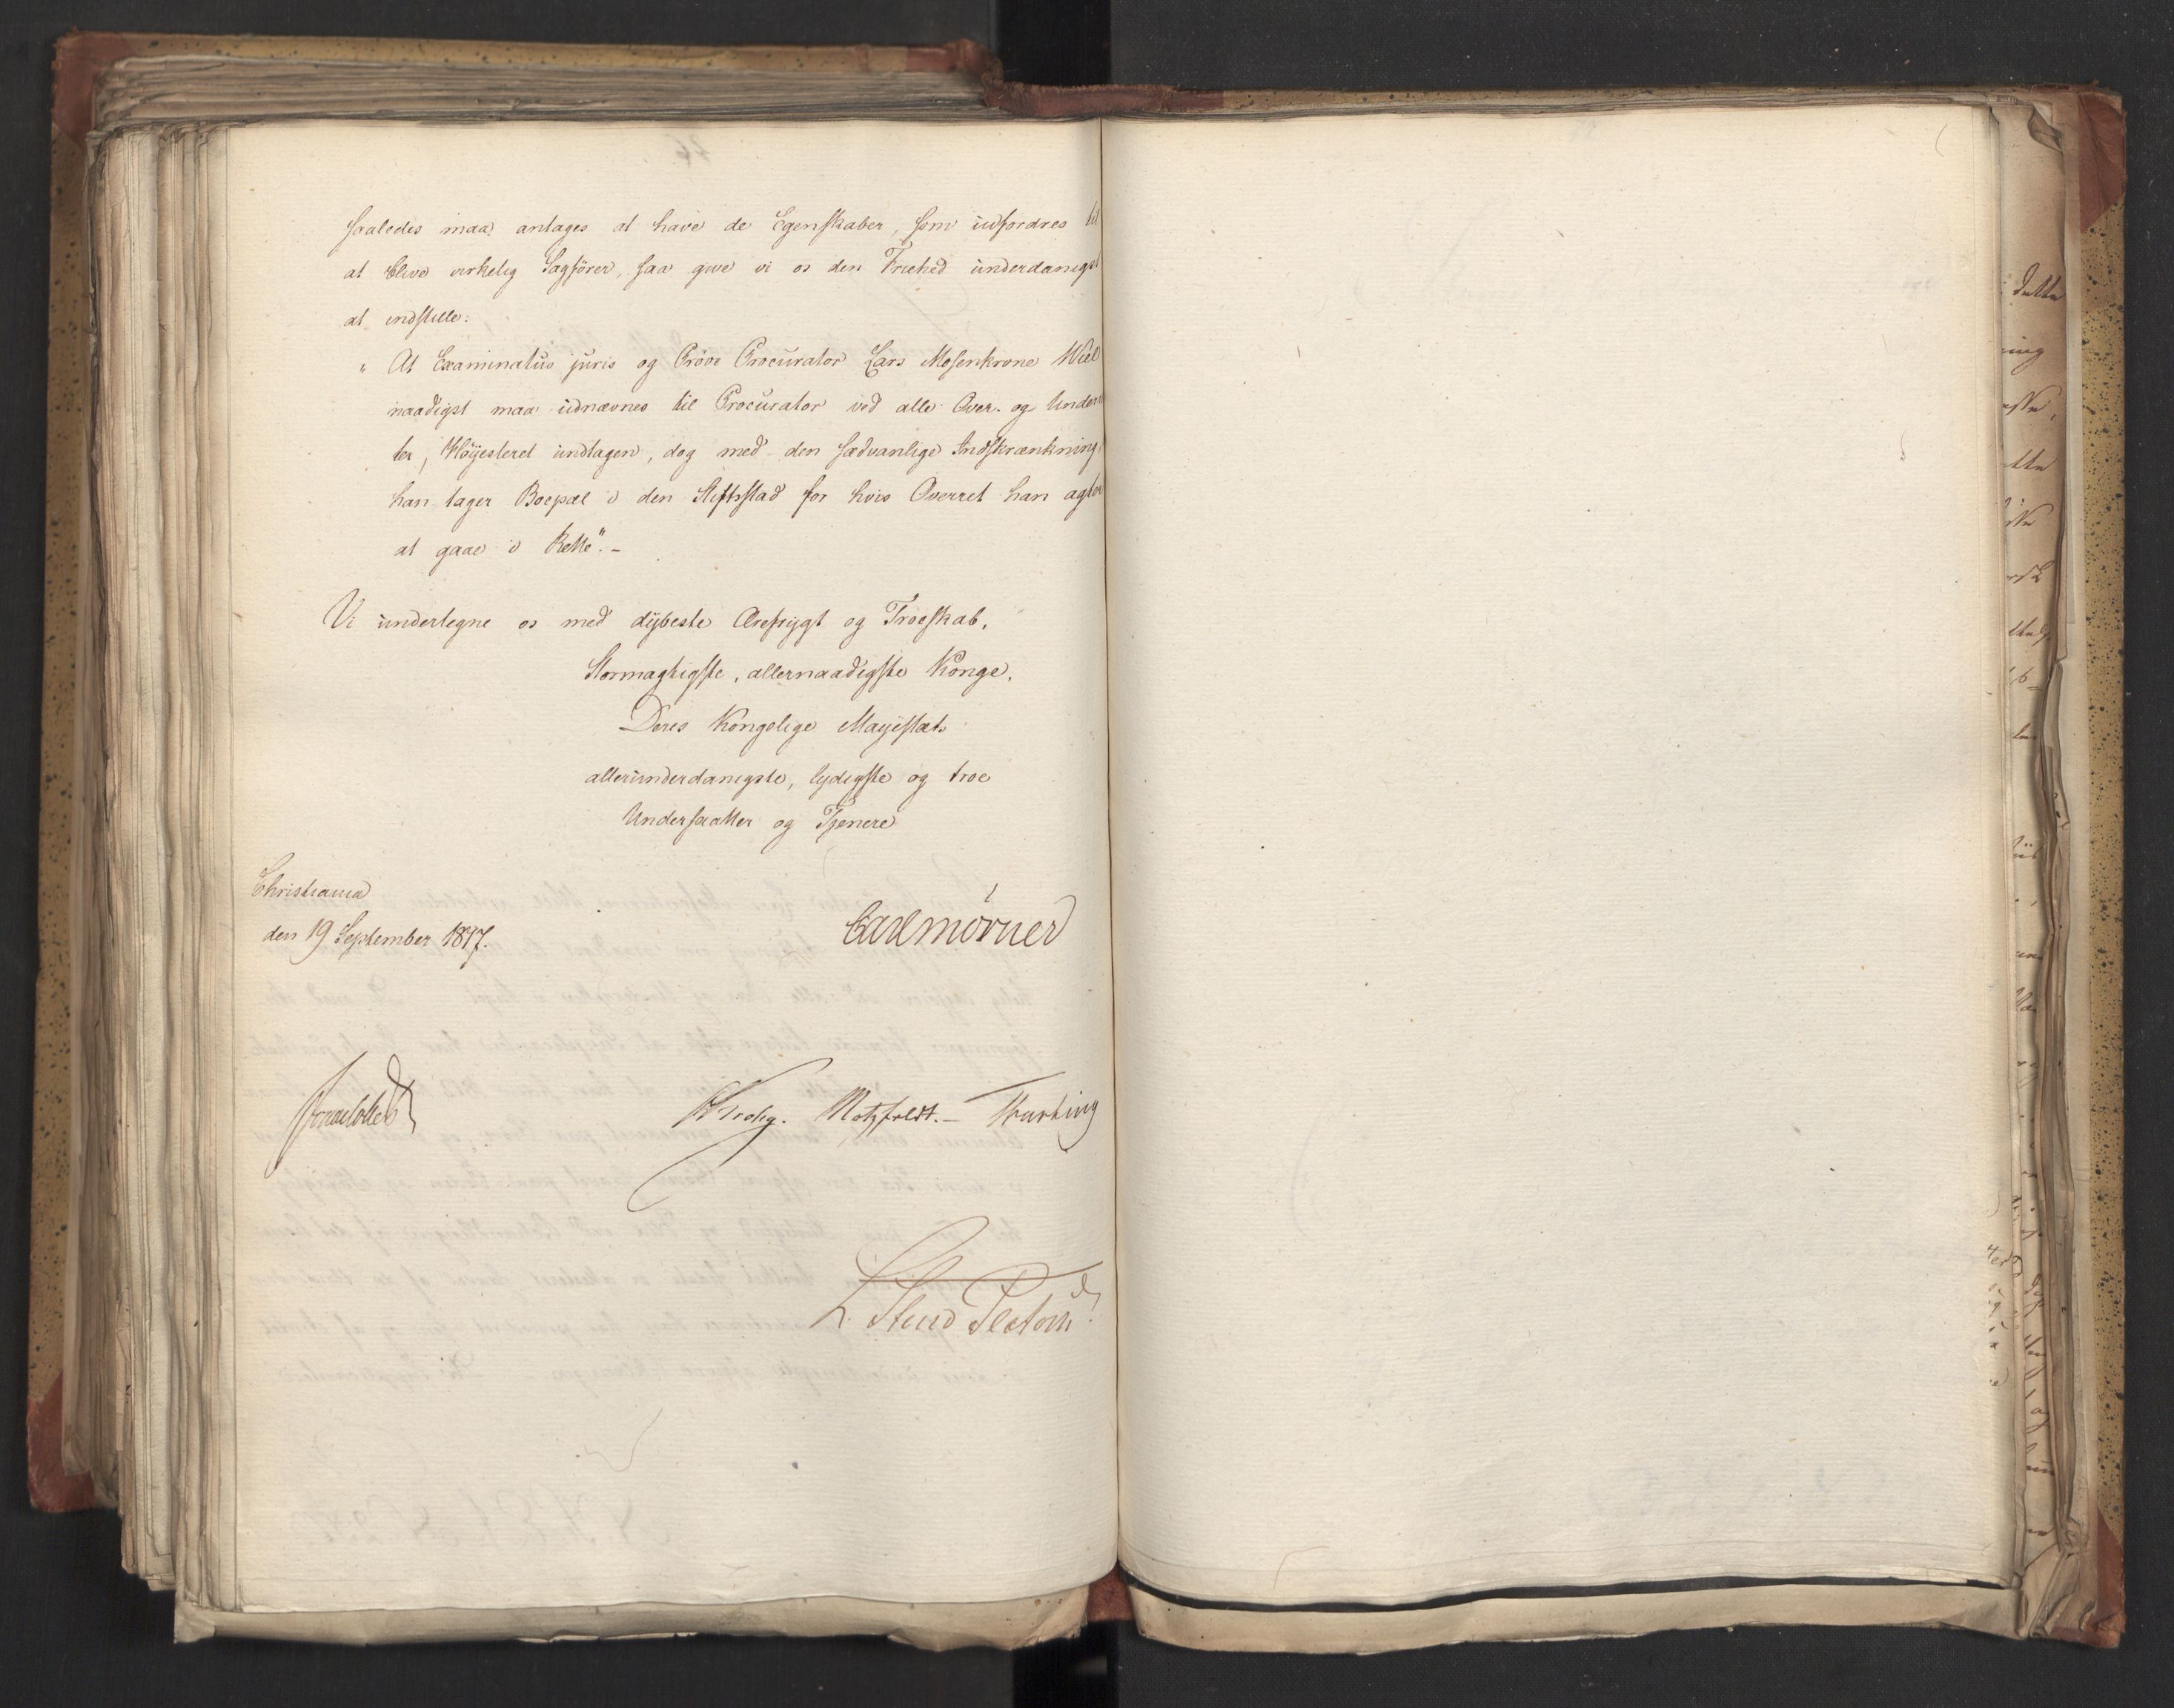 saaledes maa antages at have de Egenskaber, som udfordres til
at blive virkelig Sagfører, saa give vi os den Friehed underdanigst
at indstille:
" At Examinatus juris og Prøve Procurator Lars Mosenkrone Wiel
naadigst maa udnævnes til Procurator ved alle Over- og Under
ter, Høyesteret undtagen, dog med den sædvanlige Indskrænkning
han tager Boepæl i den Stiftsstad for hvis Overret han agter
at gaae i Rette". -
Vi undertegne os med dybeste Ærefrygt og Troeskab,
Stormægtigste, allernaadigste Konge,
Deres Kongelige Mayestæts
allerunderdanigste, lydigste og troe
Undersaatter og Tjenere
Christiania
den 19 September 1817.
Carl Mörner
Krohg. Motzfeldt. -